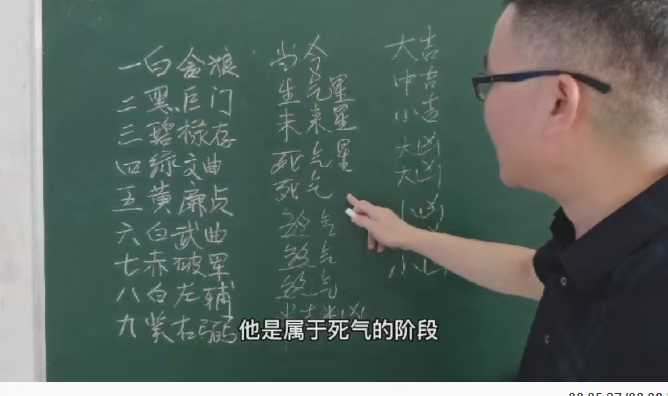 一白贪狼 当令 大吉
二黑巨门 生气星 中吉
三碧禄存 未来星 小吉
四绿文曲 死气星 大凶
五黄廉贞 死气 大凶
六白武曲 煞气 小凶
七赤破军 煞气
八白左辅 煞气 小凶
九紫右弼 半吉半凶
他是属于死气的阶段